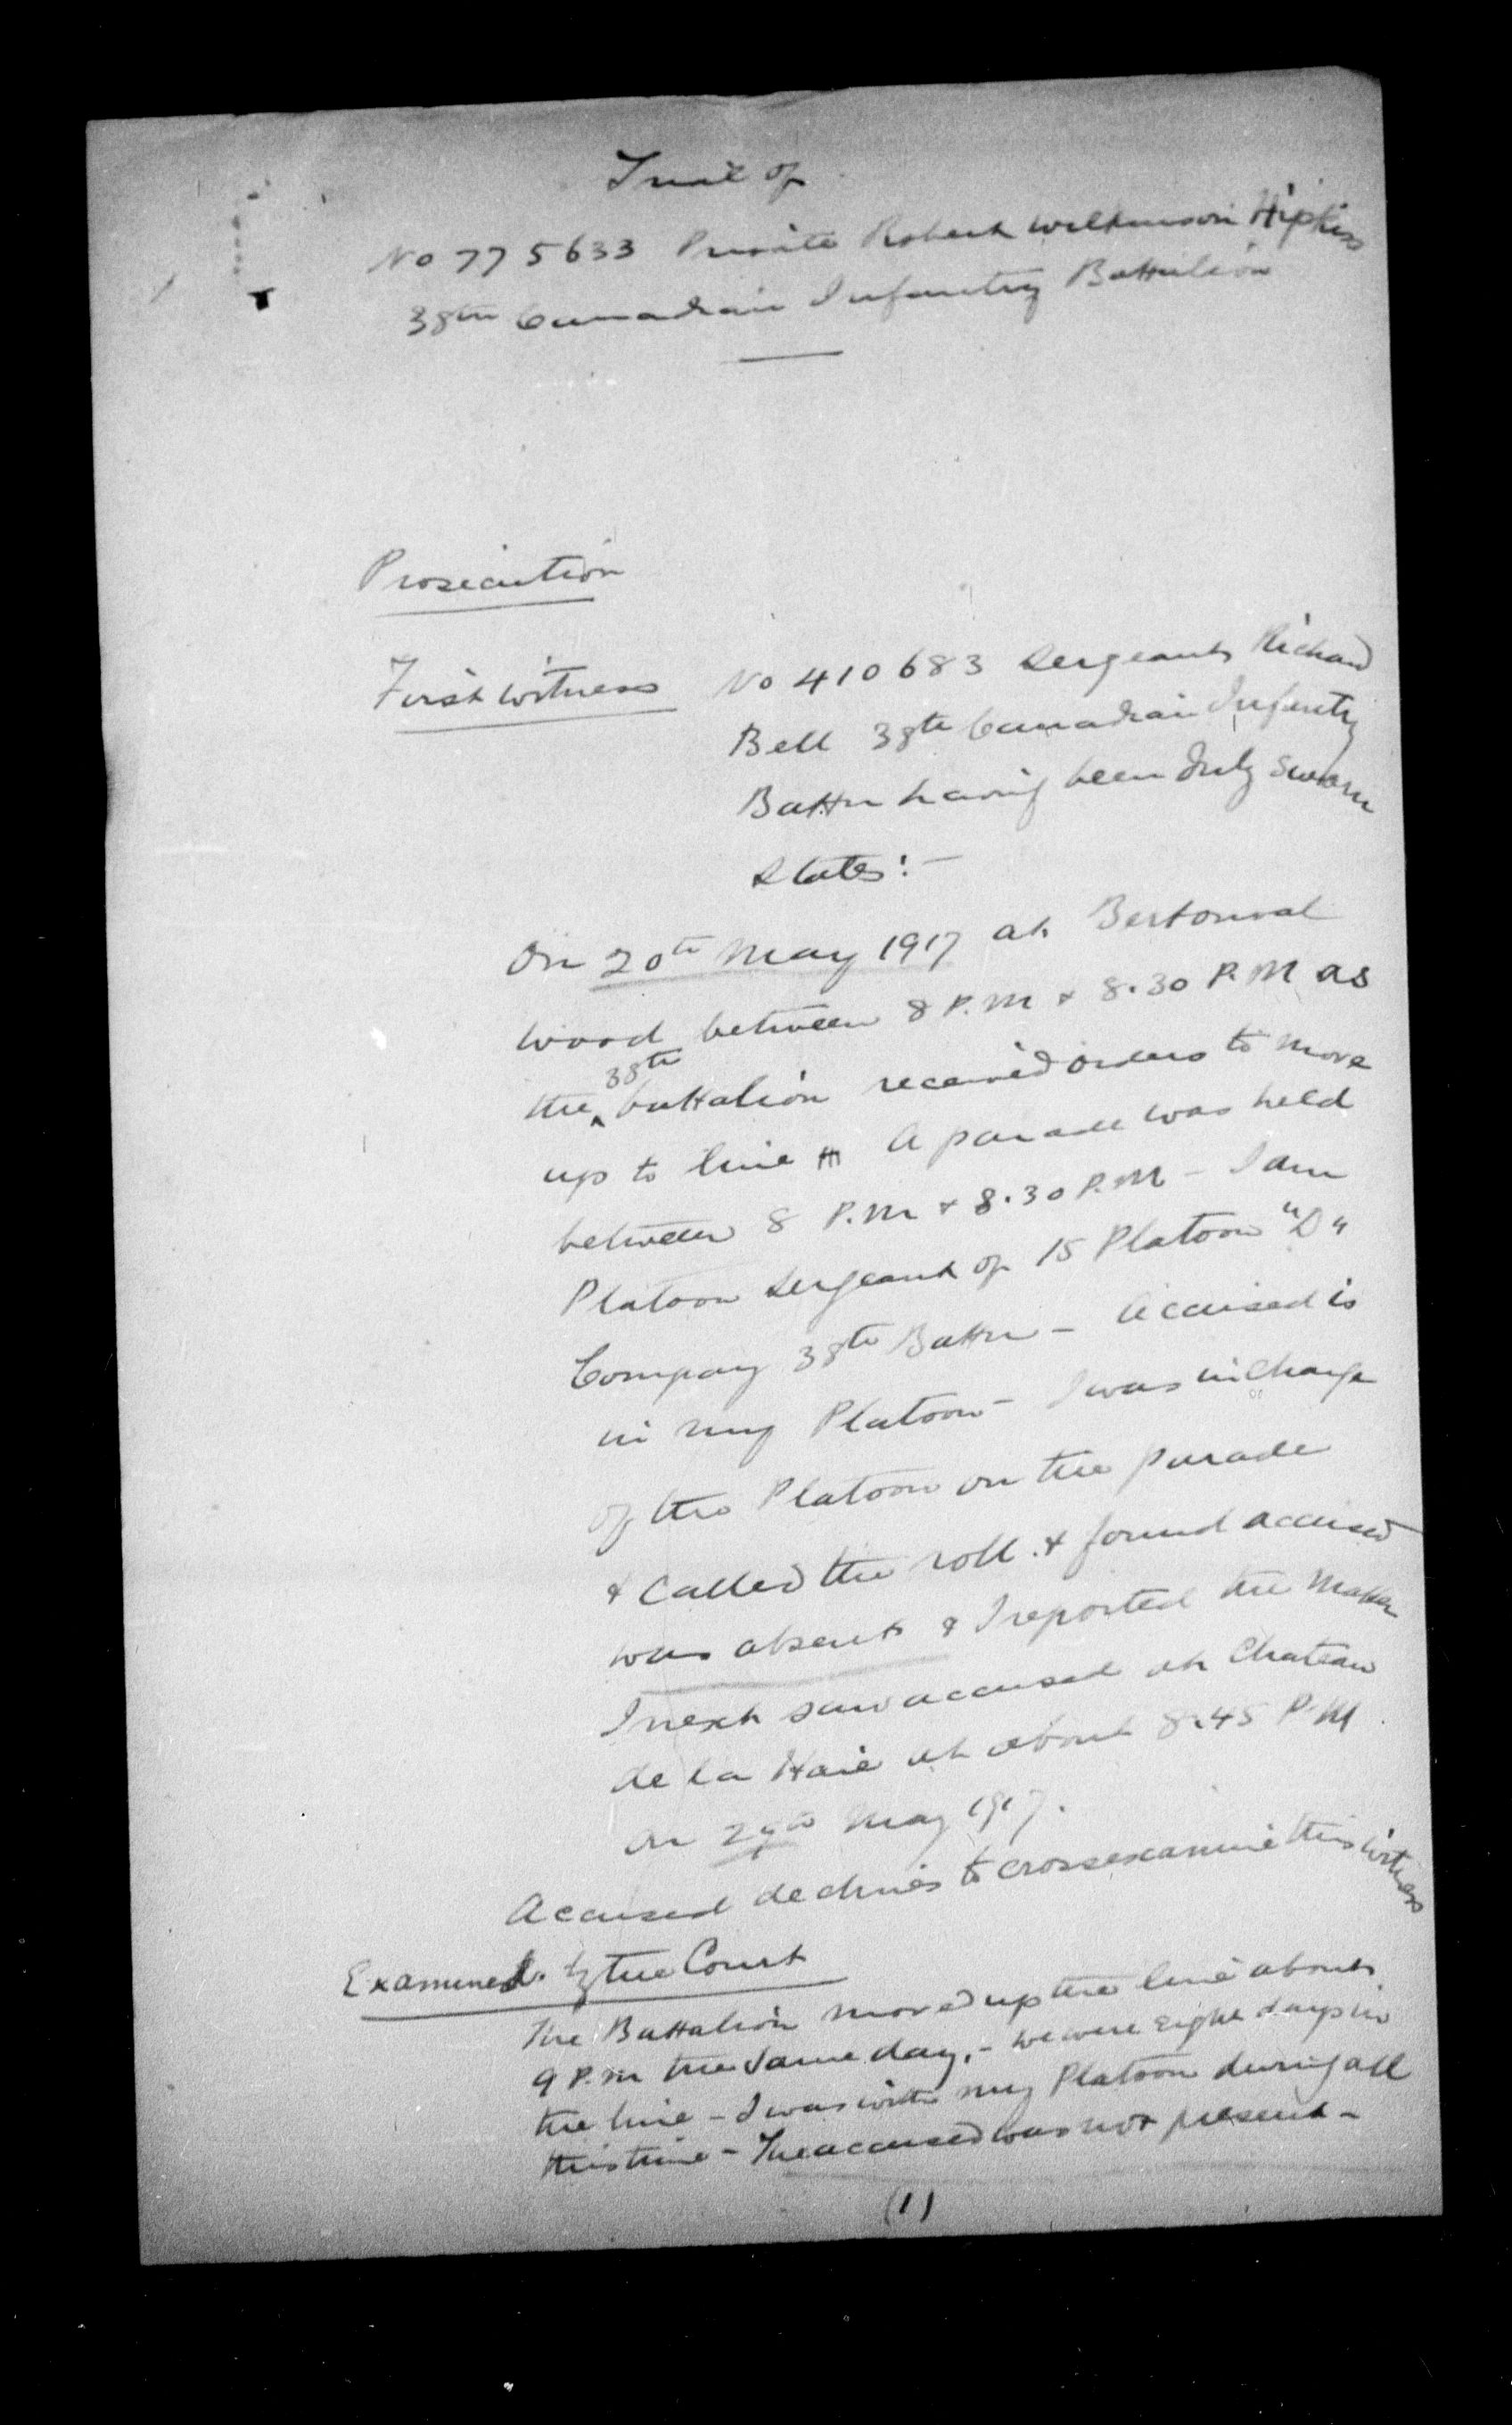 Trial of
No 775633 Private Robert Wilkinson Hipkiss
38th Canadian Infantry Battalion
Prosecution
First witness No 410683 Sergeant Richard
Bell 38th Canadian Infantry
Battn having been duly sworn
States:-
On 20th May 1917 at Bertonval
wood between 8 P.M & 8.30 P.M as
the 38th battalion received orders to move
up to line A parade was held
between 8 P.M & 8.30 P.M - I am
Platoon Sergeant of 15 Platoon "D"
Company 38th Battn - Accused is
in my Platoon - I was in charge
of the Platoon on the parade
& called the roll & found accused
was absent & I reported the matter
I next saw accused at Chateau
de la Haie at about 8.45 P.M
on May 1917.
Accused declines to cross examine this witness
Examined by the Court
The Battalion moved up the line about
9 P.M the same day, - we were eight days in
the line - I was with my Platoon during all
this time - The accused was not present -
(1)